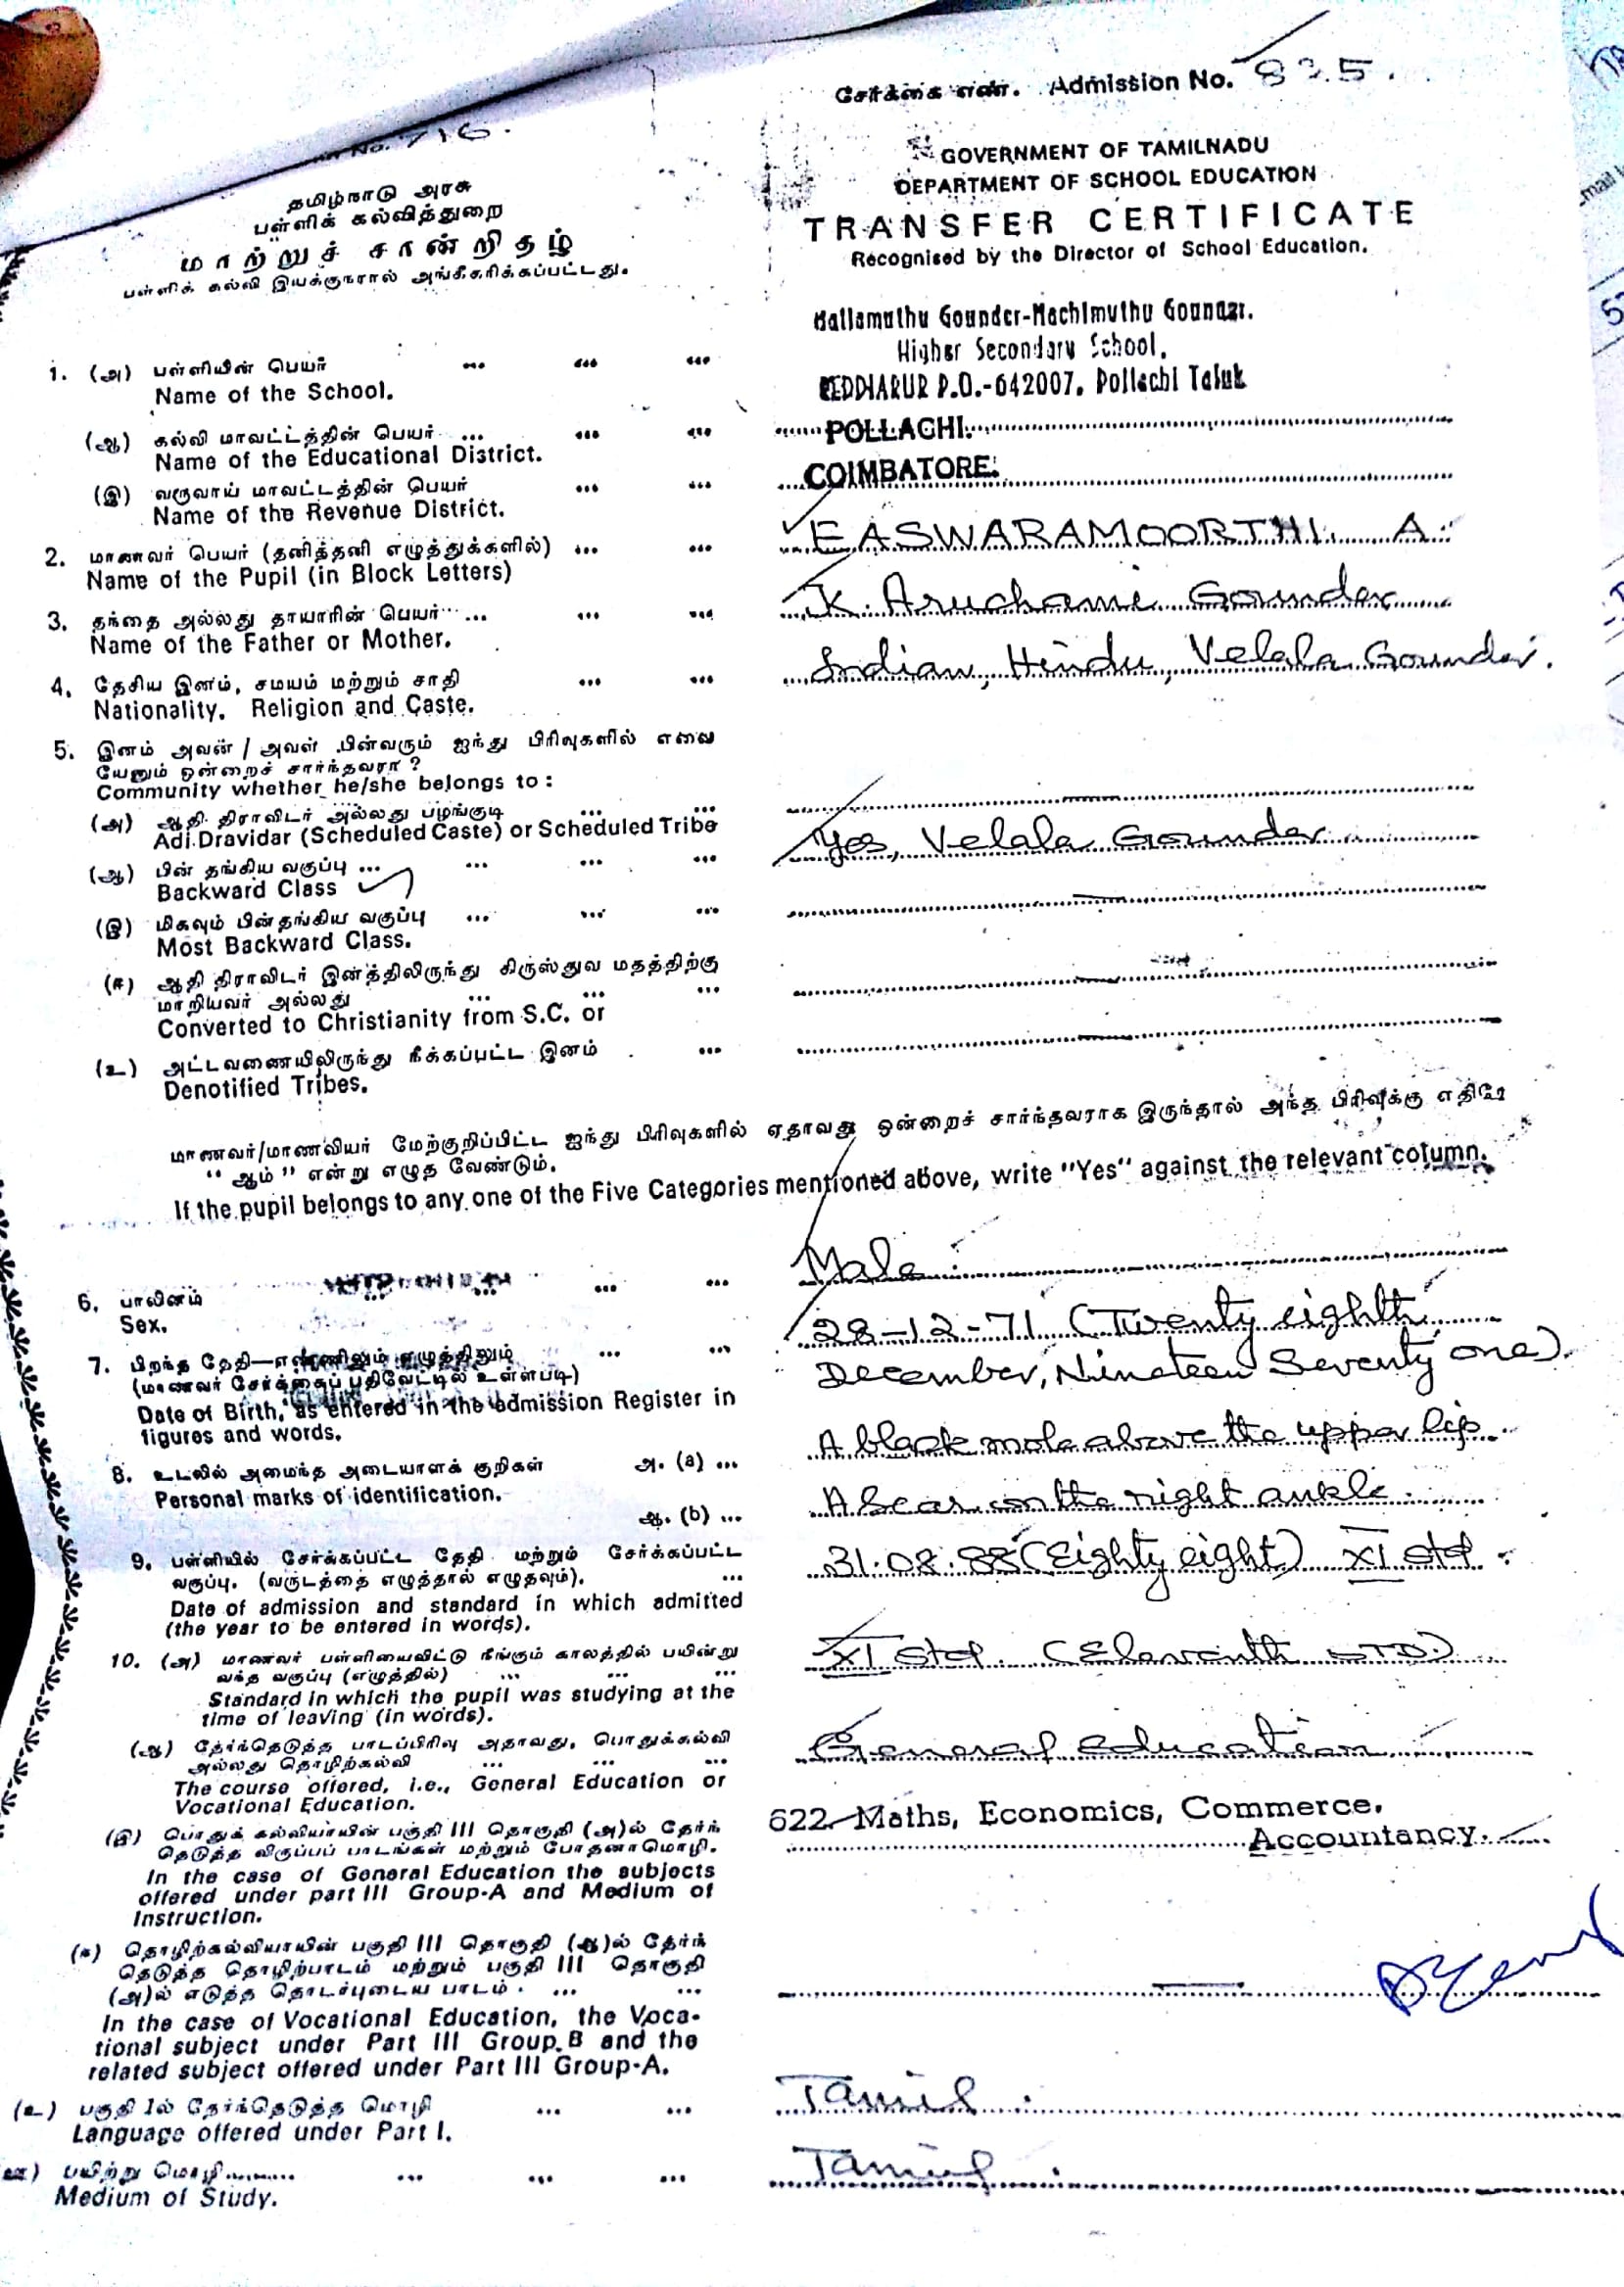 சேர்க்கை எண். Admission No. 825.
No. 716.
தமிழ்நாடு அரசு
பள்ளிக் கல்வித்துறை
மாற்றுச் சான்றிதழ்
பள்ளிக் கல்வி இயக்குநரால் அங்கீகரிக்கப்பட்டது.
GOVERNMENT OF TAMILNADU
DEPARTMENT OF SCHOOL EDUCATION
TRANSFER CERTIFICATE
Recognised by the Director of School Education.
Nallamuthu Gounder-Nachimuthu Gounder.
Higher Secondary School,
REDDIARUR P.O.-642007. Pollachi Taluk
1. (அ) பள்ளியின் பெயர் ... ... ...
Name of the School.
(ஆ) கல்வி மாவட்டத்தின் பெயர் ... ... ... POLLACHI.
Name of the Educational District.
(இ) வருவாய் மாவட்டத்தின் பெயர் ... ... COIMBATORE.
Name of the Revenue District.
2. மாணவர் பெயர் (தனித்தனி எழுத்துக்களில்) ... ... EASWARAMOORTHI. A.
Name of the Pupil (in Block Letters)
3. தந்தை அல்லது தாயாரின் பெயர் ... ... ... K. Aruchami Gounder
Name of the Father or Mother.
4. தேசிய இனம், சமயம் மற்றும் சாதி ... ... Indian, Hindu, Velala Gounder.
Nationality. Religion and Caste.
5. இனம் அவன் / அவள் பின்வரும் ஐந்து பிரிவுகளில் எவை
யேனும் ஒன்றைச் சார்ந்தவரா ?
Community whether he/she belongs to :
(அ) ஆதி திராவிடர் அல்லது பழங்குடி ... ...
Adi.Dravidar (Scheduled Caste) or Scheduled Tribe
(ஆ) பின் தங்கிய வகுப்பு ... ... ... ... Yes, Velala Gounder
Backward Class
(இ) மிகவும் பின்தங்கிய வகுப்பு ... ... ...
Most Backward Class.
(ஈ) ஆதி திராவிடர் இனத்திலிருந்து கிருஸ்துவ மதத்திற்கு
மாறியவர் அல்லது ... ... ...
Converted to Christianity from S.C. or
(உ) அட்டவணையிலிருந்து நீக்கப்பட்ட இனம் ...
Denotified Tribes.
மாணவர்/மாணவியர் மேற்குறிப்பிட்ட ஐந்து பிரிவுகளில் ஏதாவது ஒன்றைச் சார்ந்தவராக இருந்தால் அந்த பிரிவுக்கு எதிரே
“ ஆம் ” என்று எழுத வேண்டும்.
If the pupil belongs to any one of the Five Categories mentioned above, write "Yes" against the relevant column.
6. பாலினம் ... ... ... ... Male
Sex.
7. பிறந்த தேதி—எண்ணிலும் எழுத்திலும் ... ... 28-12-71 (Twenty eighth
(மாணவர் சேர்க்கைப் பதிவேட்டில் உள்ளபடி) December, Nineteen Seventy one).
Date of Birth, as entered in the admission Register in
figures and words.
8. உடலில் அமைந்த அடையாளக் குறிகள் அ. (a) ... A black mole above the upper lip.
Personal marks of identification.
ஆ. (b) ... A Scar on the right ankle.
9. பள்ளியில் சேர்க்கப்பட்ட தேதி மற்றும் சேர்க்கப்பட்ட 31.08.88 (Eighty eight) XI std.
வகுப்பு. (வருடத்தை எழுத்தால் எழுதவும்). ...
Date of admission and standard in which admitted
(the year to be entered in words).
10. (அ) மாணவர் பள்ளியைவிட்டு நீங்கும் காலத்தில் பயின்று XI std. (Eleventh STD.)
வந்த வகுப்பு (எழுத்தில்) ... ... ...
Standard in which the pupil was studying at the
time of leaving (in words).
(ஆ) தேர்ந்தெடுத்த பாடப்பிரிவு அதாவது, பொதுக்கல்வி General education
அல்லது தொழிற்கல்வி ... ...
The course offered, i.e., General Education or
Vocational Education.
(இ) பொதுக் கல்வியாயின் பகுதி III தொகுதி (அ)ல் தேர்ந் 622. Maths, Economics, Commerce.
தெடுத்த விருப்பப் பாடங்கள் மற்றும் போதனாமொழி. Accountancy.
In the case of General Education the subjects
offered under part III Group-A and Medium of
Instruction.
(ஈ) தொழிற்கல்வியாயின் பகுதி III தொகுதி (ஆ)ல் தேர்ந்
தெடுத்த தொழிற்பாடம் மற்றும் பகுதி III தொகுதி
(அ)ல் எடுத்த தொடர்புடைய பாடம் . ... ...
In the case of Vocational Education, the Voca-
tional subject under Part III Group.B and the
related subject offered under Part III Group-A.
(உ) பகுதி 1ல் தேர்ந்தெடுத்த மொழி ... ... Tamil.
Language offered under Part I.
(ஊ) பயிற்று மொழி......... ... ... ... Tamil.
Medium of Study.